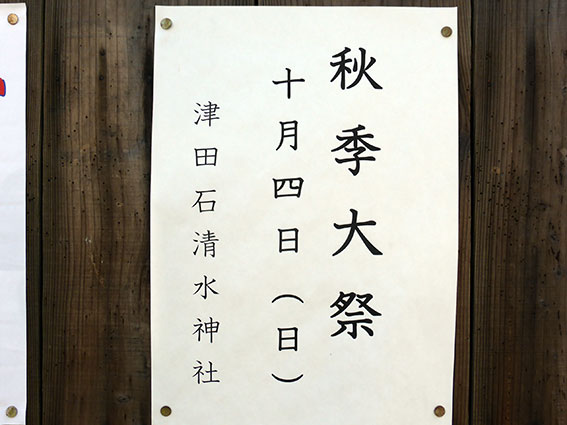 秋季大祭
十月四日（日）
津田石清水神社